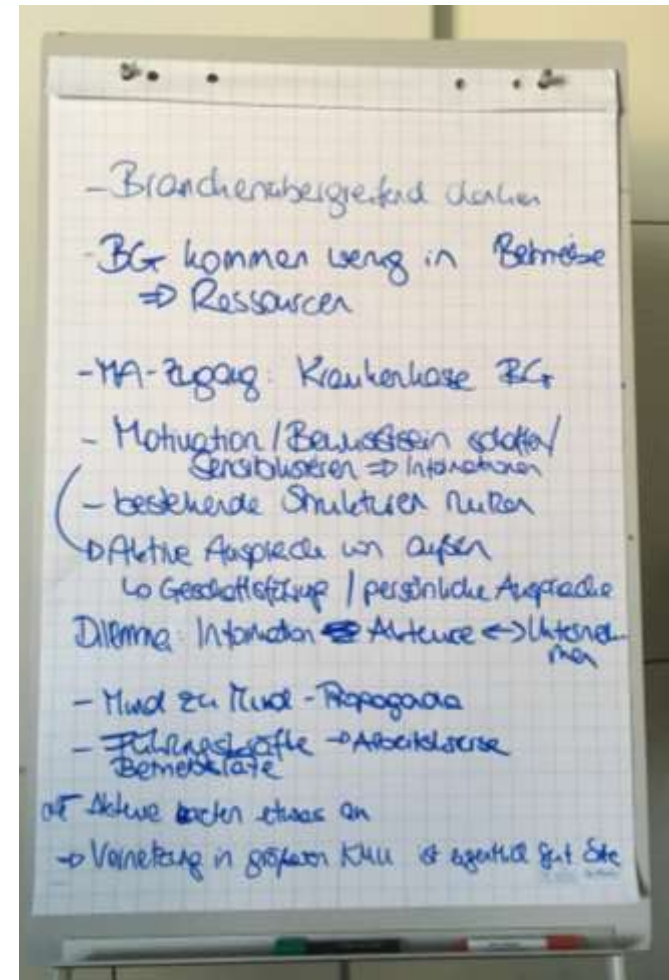 - Branchenübergreifend denken
- BG kommen wenig in Betriebe
⇒ Ressourcen
- MA-Zugang: Krankenkasse BG
- Motivation / Bewusstsein schaffen /
Sensibilisieren ⇒ Informationen
- bestehende Strukturen nutzen
→ Aktive Ansprache von außen
↳ Geschäftsführung / persönliche Ansprache
Dilemma: Information Akteure ↔ Unterneh-
men
- Mund zu Mund - Propaganda
- Führungskräfte → Arbeitskreise
Betriebsräte
Akteure bieten etwas an
→ Vernetzung in größeren KMU ist eigentlich gut